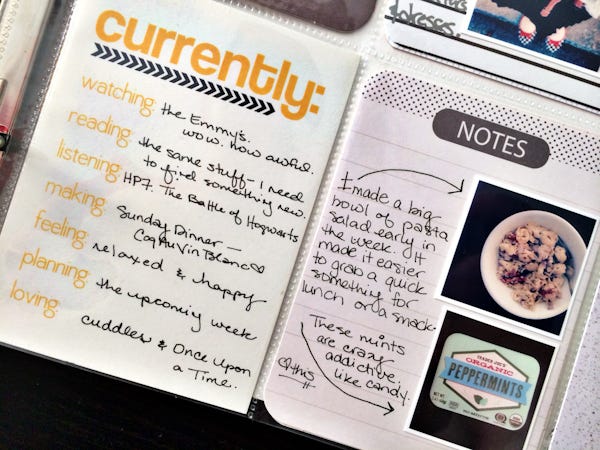 currently:
watching: the Emmy's.
wow. how awful.
reading: the same stuff - I need
to find something new.
listening: HP7. The Battle of Hogwarts
making: Sunday Dinner -
Coq Au Vin Blanc
feeling: relaxed & happy
planning: the upcoming week
loving: cuddles & Once Upon
a Time.
NOTES
I made a big
bowl of pasta
salad early in
the week. It
made it easier
to grab a quick
something for
lunch or a snack.
These mints
are crazy
addictive,
like candy.
TRADER JOE'S
ORGANIC
PEPPERMINTS